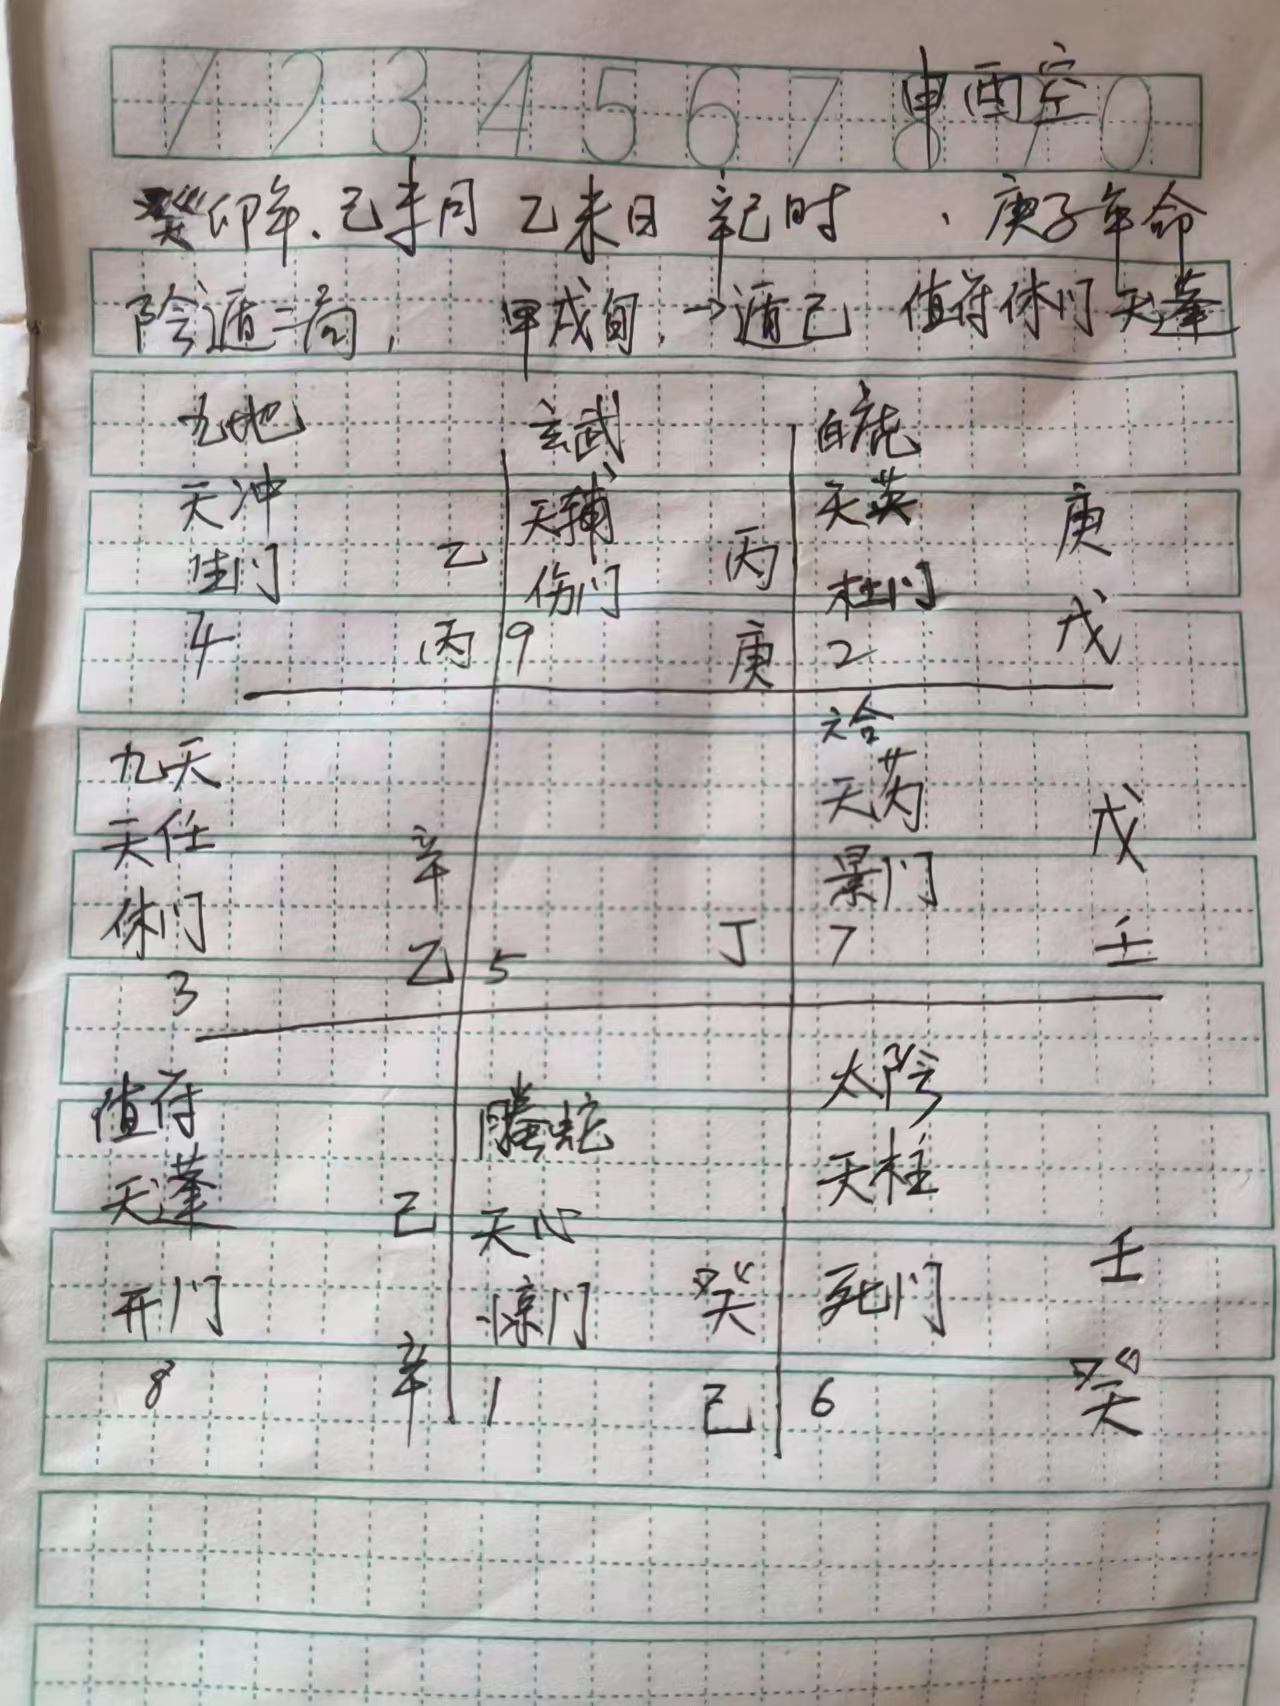 1 2 3 4 5 6 7 8 9 0
申酉空
癸卯年、己未月 乙未日 辛巳时 、庚子年命
阴遁二局, 甲戌旬.→遁己 值符休门天蓬
九地 玄武 白虎
天冲 天辅 天英 庚
生门 乙 伤门 丙 杜门 戊
4 丙 9 庚 2
六合
九天 天芮 戊
天任 辛 景门
休门 乙 5 丁 7 壬
3
太阴
值符 螣蛇 天柱
天蓬 己 天心 壬
开门 惊门 癸 死门
8 辛 1 己 6 癸